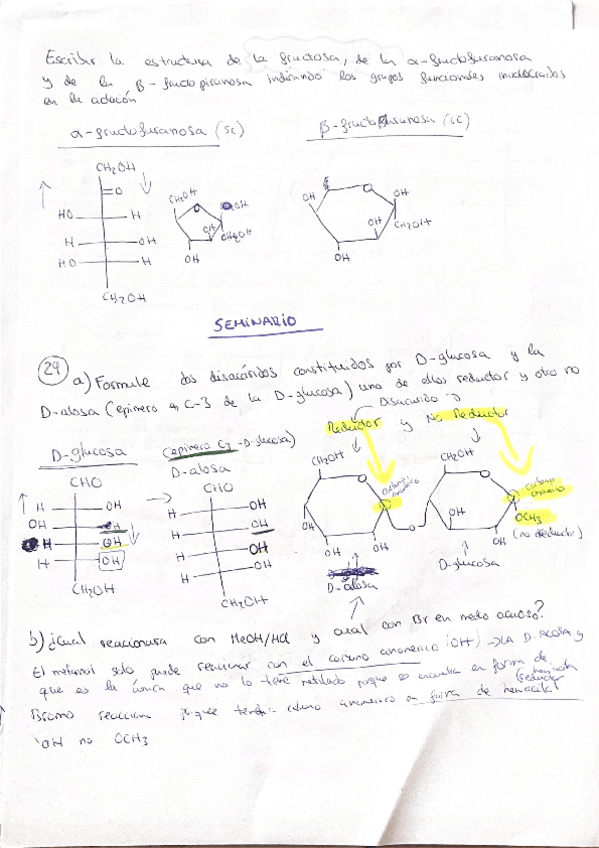 Escribir la estructura de la fructosa, de la α-fructofuranosa
y de la β-fructopiranosa indicando los grupos funcionales involucrados
en la ciclación
α-fructofuranosa (5C)
β-fructofuranosa (6C)
CH2OH
O
HO H
H OH
HO H
CH2OH
CH2OH O OH
OH CH2OH
OH
OH O OH
OH CH2OH
OH
SEMINARIO
29 a) Formule dos disacáridos constituidos por D-glucosa y la
D-alosa (epímero en C-3 de la D-glucosa) uno de ellos reductor y otro no
Disacárido
Reductor y No Reductor
D-glucosa
(epímero C3 -D-glucosa)
D-alosa
CHO
H OH
OH H
H OH
H OH
CH2OH
CHO
H OH
H OH
H OH
H OH
CH2OH
CH2OH O
Carbono anomérico
OH
OH OH
O
D-alosa
CH2OH O
Carbono anomérico
OCH3
(no reductor)
OH
OH
D-glucosa
b) ¿Cual reacionara con MeOH/HCl y cual con Br en medio acuoso?
El metanol solo puede reacionar con el carbono anomérico (OH) → LA D. ALOSA y
que es la única que no lo tiene metilado porque se encuentra en forma de
(reductor
Bromo reacciona porque carbono anomerico en forma de hemiacetal
OH no OCH3